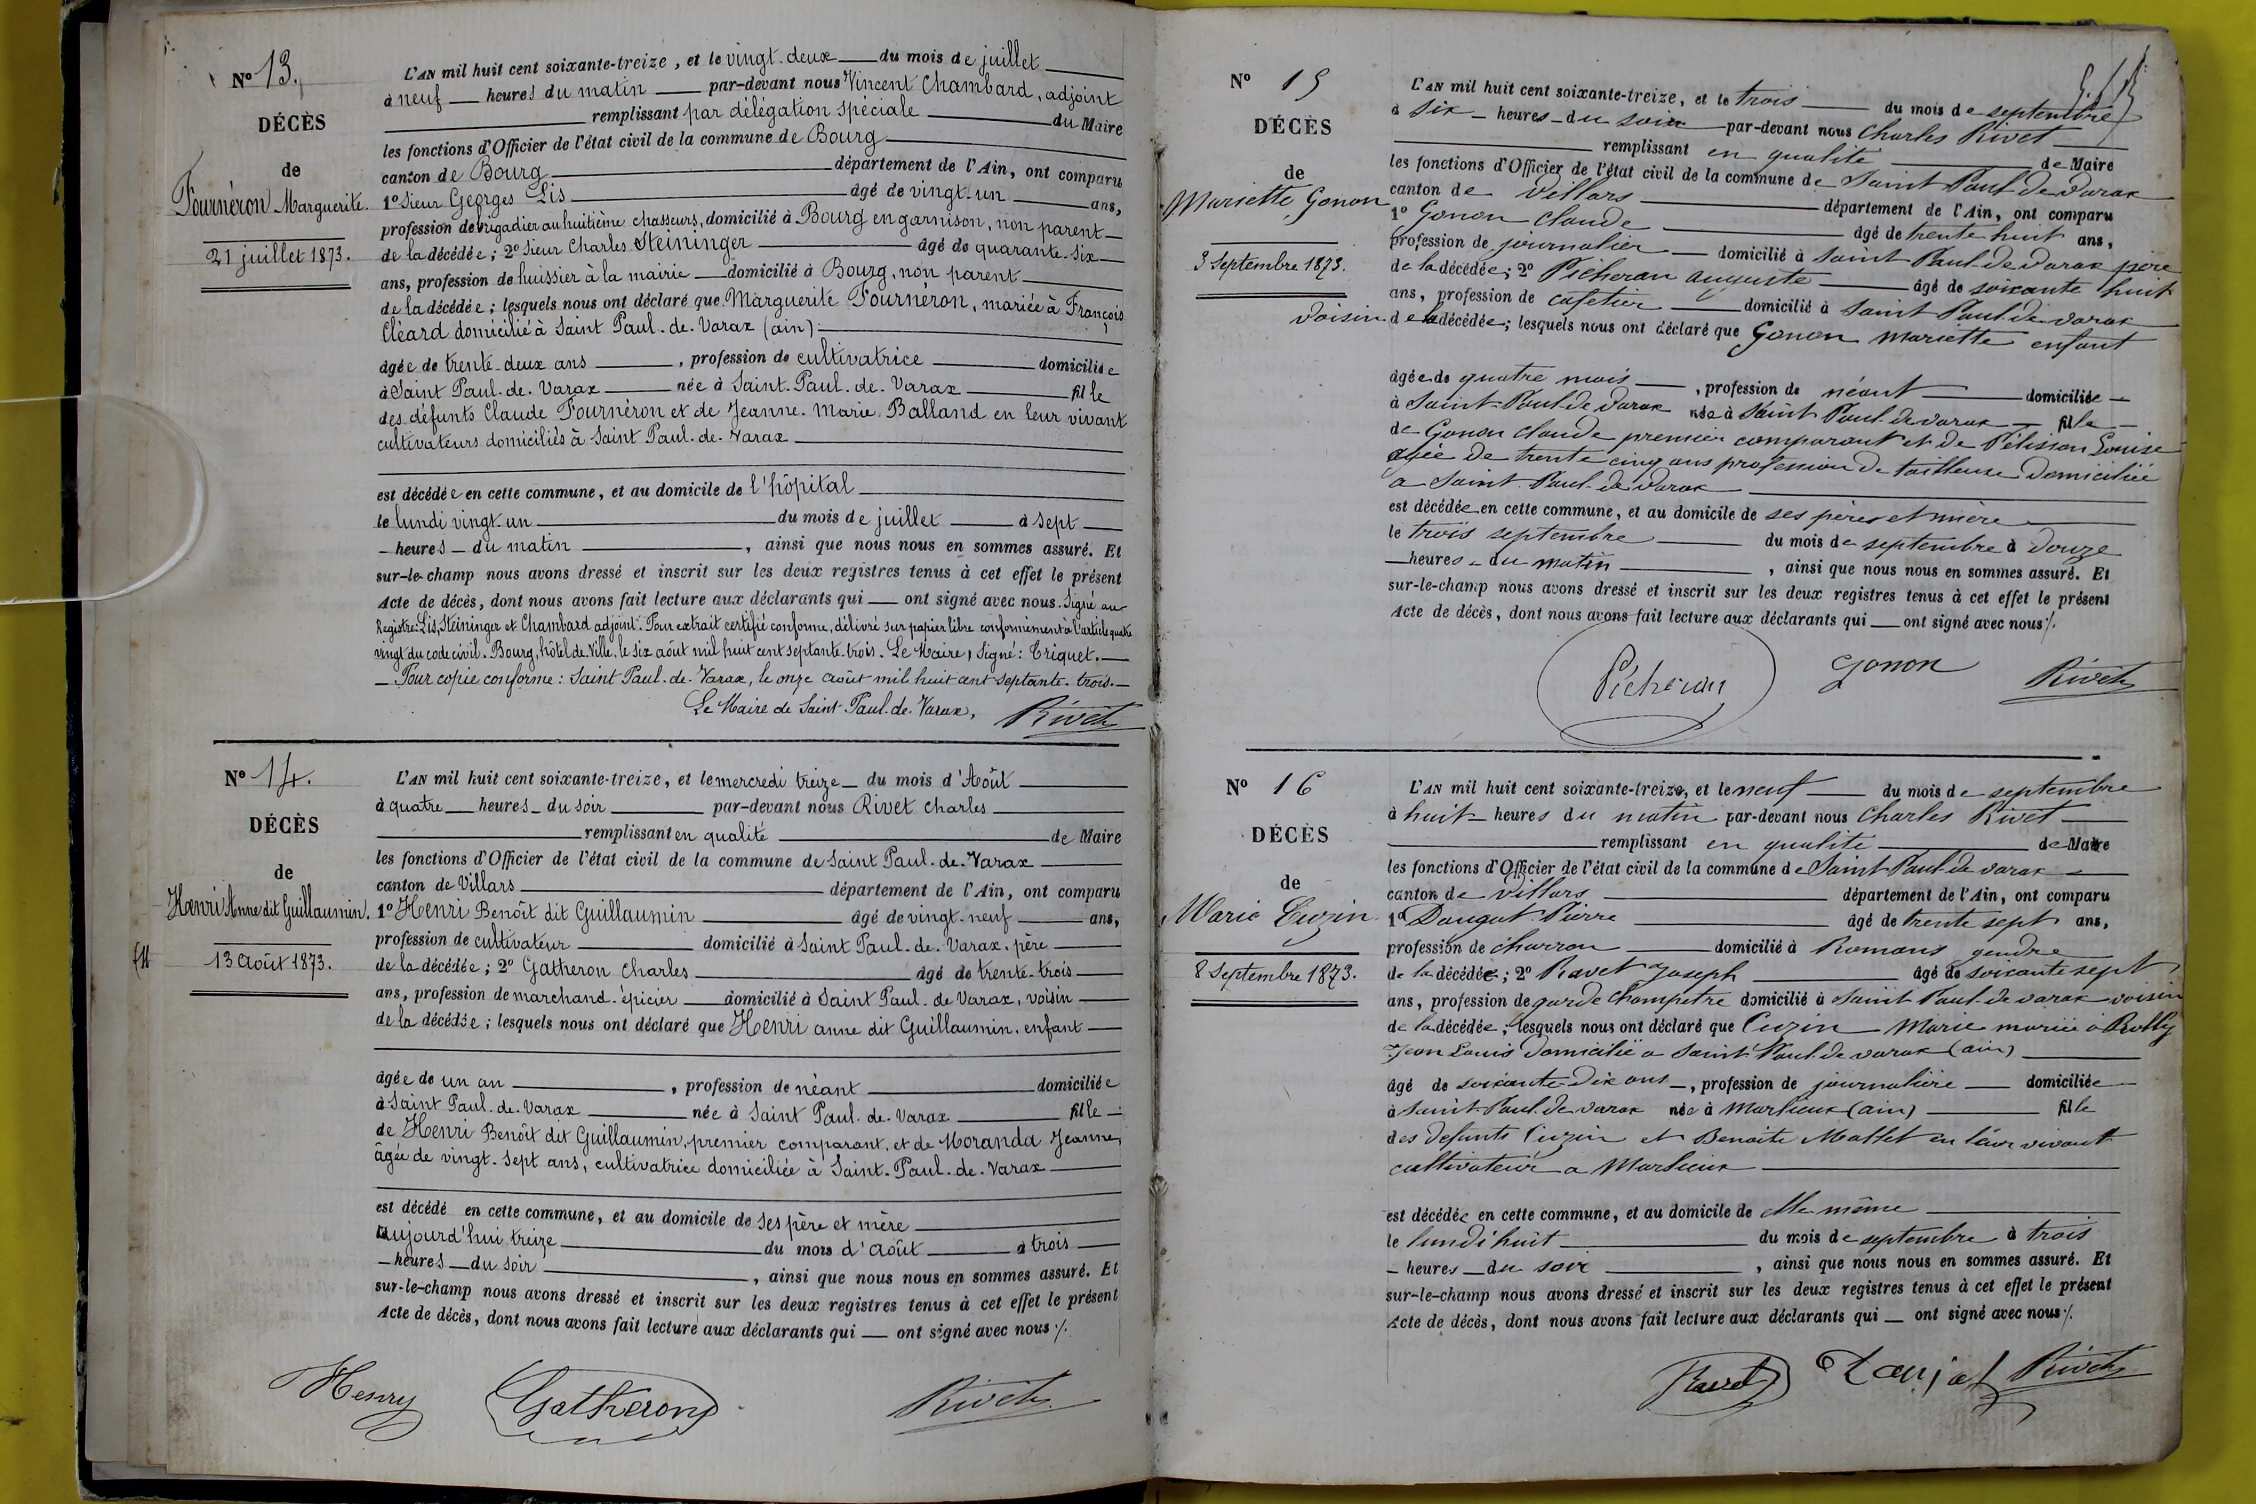 N° 13.
DÉCÈS
de
Fournéron Marguerite.
21 juillet 1873.
L'AN mil huit cent soixante-treize, et le vingt-deux du mois de juillet
à neuf heures du matin par-devant nous Vincent Chambard, adjoint
remplissant par délégation spéciale du Maire
les fonctions d'Officier de l'état civil de la commune de Bourg
canton de Bourg département de l'Ain, ont comparu
1° Sieur Georges Lis âgé de vingt-un ans,
profession de brigadier au huitième chasseurs, domicilié à Bourg en garnison, non parent
de la décédée; 2° Sieur Charles Steininger âgé de quarante-six
ans, profession de huissier à la mairie domicilié à Bourg, non parent
de la décédée; lesquels nous ont déclaré que Marguerite Fournéron, mariée à François
Cléard domicilié à Saint Paul-de-Varax (ain)
âgée de trente-deux ans, profession de cultivatrice domiciliée
à Saint Paul-de-Varax née à Saint-Paul-de-Varax fille
des défunts Claude Fournéron et de Jeanne-Marie Balland en leur vivant
cultivateurs domiciliés à Saint Paul-de-Varax
est décédée en cette commune, et au domicile de l'hôpital
le lundi vingt-un du mois de juillet à sept
heures du matin, ainsi que nous nous en sommes assuré. Et
sur-le-champ nous avons dressé et inscrit sur les deux registres tenus à cet effet le présent
Acte de décès, dont nous avons fait lecture aux déclarants qui ont signé avec nous. Signé au
Registre: Lis, Steininger et Chambard adjoint. Pour extrait certifié conforme, délivré sur papier libre conformément à l'article quatre
vingt du code civil. Bourg, hôtel de Ville, le six août mil huit cent septante-trois. Le Maire, Signé: Triquet.
Pour copie conforme: Saint Paul-de-Varax, le onze août mil huit cent septante-trois.
Le Maire de Saint-Paul-de-Varax,
Rivet
N° 14.
DÉCÈS
de
Henri Anne dit Guillaumin.
13 Août 1873.
L'AN mil huit cent soixante-treize, et le mercredi treize du mois d'Août
à quatre heures du soir par-devant nous Rivet Charles
remplissant en qualité de Maire
les fonctions d'Officier de l'état civil de la commune de Saint Paul-de-Varax
canton de Villars département de l'Ain, ont comparu
1° Henri Benoît dit Guillaumin âgé de vingt-neuf ans,
profession de cultivateur domicilié à Saint Paul-de-Varax, père
de la décédée; 2° Gatheron Charles âgé de trente-trois
ans, profession de marchand-épicier domicilié à Saint Paul-de-Varax, voisin
de la décédée; lesquels nous ont déclaré que Henri anne dit Guillaumin, enfant
âgée de un an, profession de néant domiciliée
à Saint Paul-de-Varax née à Saint Paul-de-Varax fille
de Henri Benôit dit Guillaumin, premier comparant, et de Moranda Jeanne,
âgée de vingt-sept ans, cultivatrice domiciliée à Saint-Paul-de-Varax
est décédé en cette commune, et au domicile de ses père et mère
aujourd'hui treize du mois d'août à trois
heures du soir, ainsi que nous nous en sommes assuré. Et
sur-le-champ nous avons dressé et inscrit sur les deux registres tenus à cet effet le présent
Acte de décès, dont nous avons fait lecture aux déclarants qui ont signé avec nous ./.
Henry Gatheron Rivet
N° 15
DÉCÈS
de
Mariette Gonon
3 Septembre 1873.
L'AN mil huit cent soixante-treize, et le trois du mois de septembre
à six heures du soir par-devant nous Charles Rivet
remplissant en qualité de Maire
les fonctions d'Officier de l'état civil de la commune de Saint Paul-de-Varax
canton de Villars département de l'Ain, ont comparu
1° Gonon Claude âgé de trente huit ans,
profession de journalier domicilié à Saint Paul-de-Varax père
de la décédée; 2° Picheran auguste âgé de soixante huit
ans, profession de cafetier domicilié à Saint Paul-de-varax
voisin de la décédée; lesquels nous ont déclaré que Gonon Mariette enfant
âgée de quatre mois, profession de néant domiciliée
à Saint-Paul-de-Varax née à Saint Paul-de-varax fille
de Gonon Claude premier comparant et de Pélisson Louise
agée de trente cinq ans profession de tailleuse domiciliée
a Saint-Paul-de-Varax
est décédée en cette commune, et au domicile de ses pères et mère
le trois septembre du mois de septembre à douze
heures du matin, ainsi que nous nous en sommes assuré. Et
sur-le-champ nous avons dressé et inscrit sur les deux registres tenus à cet effet le présent
Acte de décès, dont nous avons fait lecture aux déclarants qui ont signé avec nous ./.
Picheran Gonon Rivet
N° 16
DÉCÈS
de
Marie Cuzin
8 Septembre 1873.
L'AN mil huit cent soixante-treize, et le neuf du mois de septembre
à huit heures du matin par-devant nous Charles Rivet
remplissant en qualité de Maire
les fonctions d'Officier de l'état civil de la commune de Saint-Paul-de-varax
canton de Villars département de l'Ain, ont comparu
1° Daugat Pierre âgé de trente sept ans,
profession de charron domicilié à Romans gendre
de la décédée; 2° Ravet Joseph âgé de soixante sept
ans, profession de garde Champetre domicilié à Saint-Paul-de-varax voisin
de la décédée; lesquels nous ont déclaré que Cuzin Marie mariée à Rolly
Jean Louis domicilié a Saint Paul-de-varax (ain)
âgé de soixante-dix ans, profession de journalière domiciliée
à Saint-Paul-de-varax née à Marlieux (ain) fille
des defunts Cuzin et Benoite Mallet en leur vivant
cultivateur a Marlieux
est décédée en cette commune, et au domicile de elle même
le lundi huit du mois de septembre à trois
heures du soir, ainsi que nous nous en sommes assuré. Et
sur-le-champ nous avons dressé et inscrit sur les deux registres tenus à cet effet le présent
Acte de décès, dont nous avons fait lecture aux déclarants qui ont signé avec nous ./.
Ravet Daujat Rivet